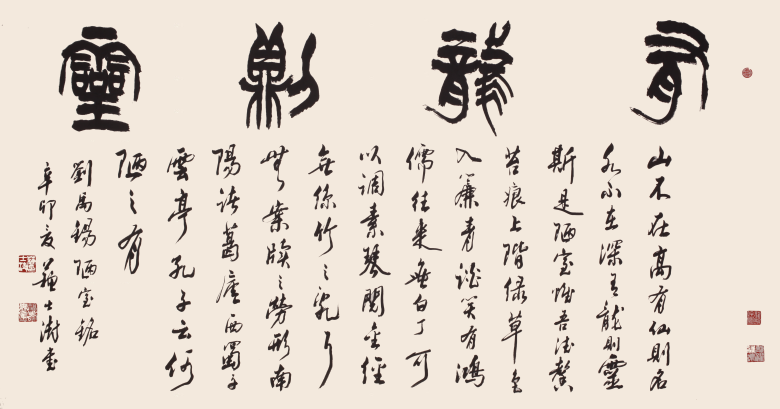 有龍則靈
山不在高有仙則名
水不在深有龍則靈
斯是陋室惟吾德馨
苔痕上階綠草色
入簾青談笑有鴻
儒往來無白丁可
以調素琴閱金經
無絲竹之亂耳
無案牘之勞形南
陽諸葛廬西蜀子
雲亭孔子云何
陋之有
劉禹錫陋室銘
辛卯夏蘇士澍書